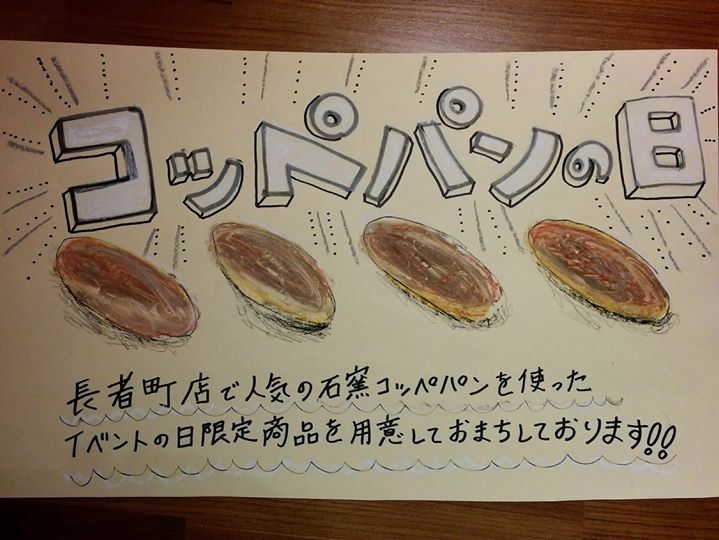 コッペパンの日
長者町店で人気の石窯コッペパンを使った
イベントの日限定商品を用意しておまちしております!!